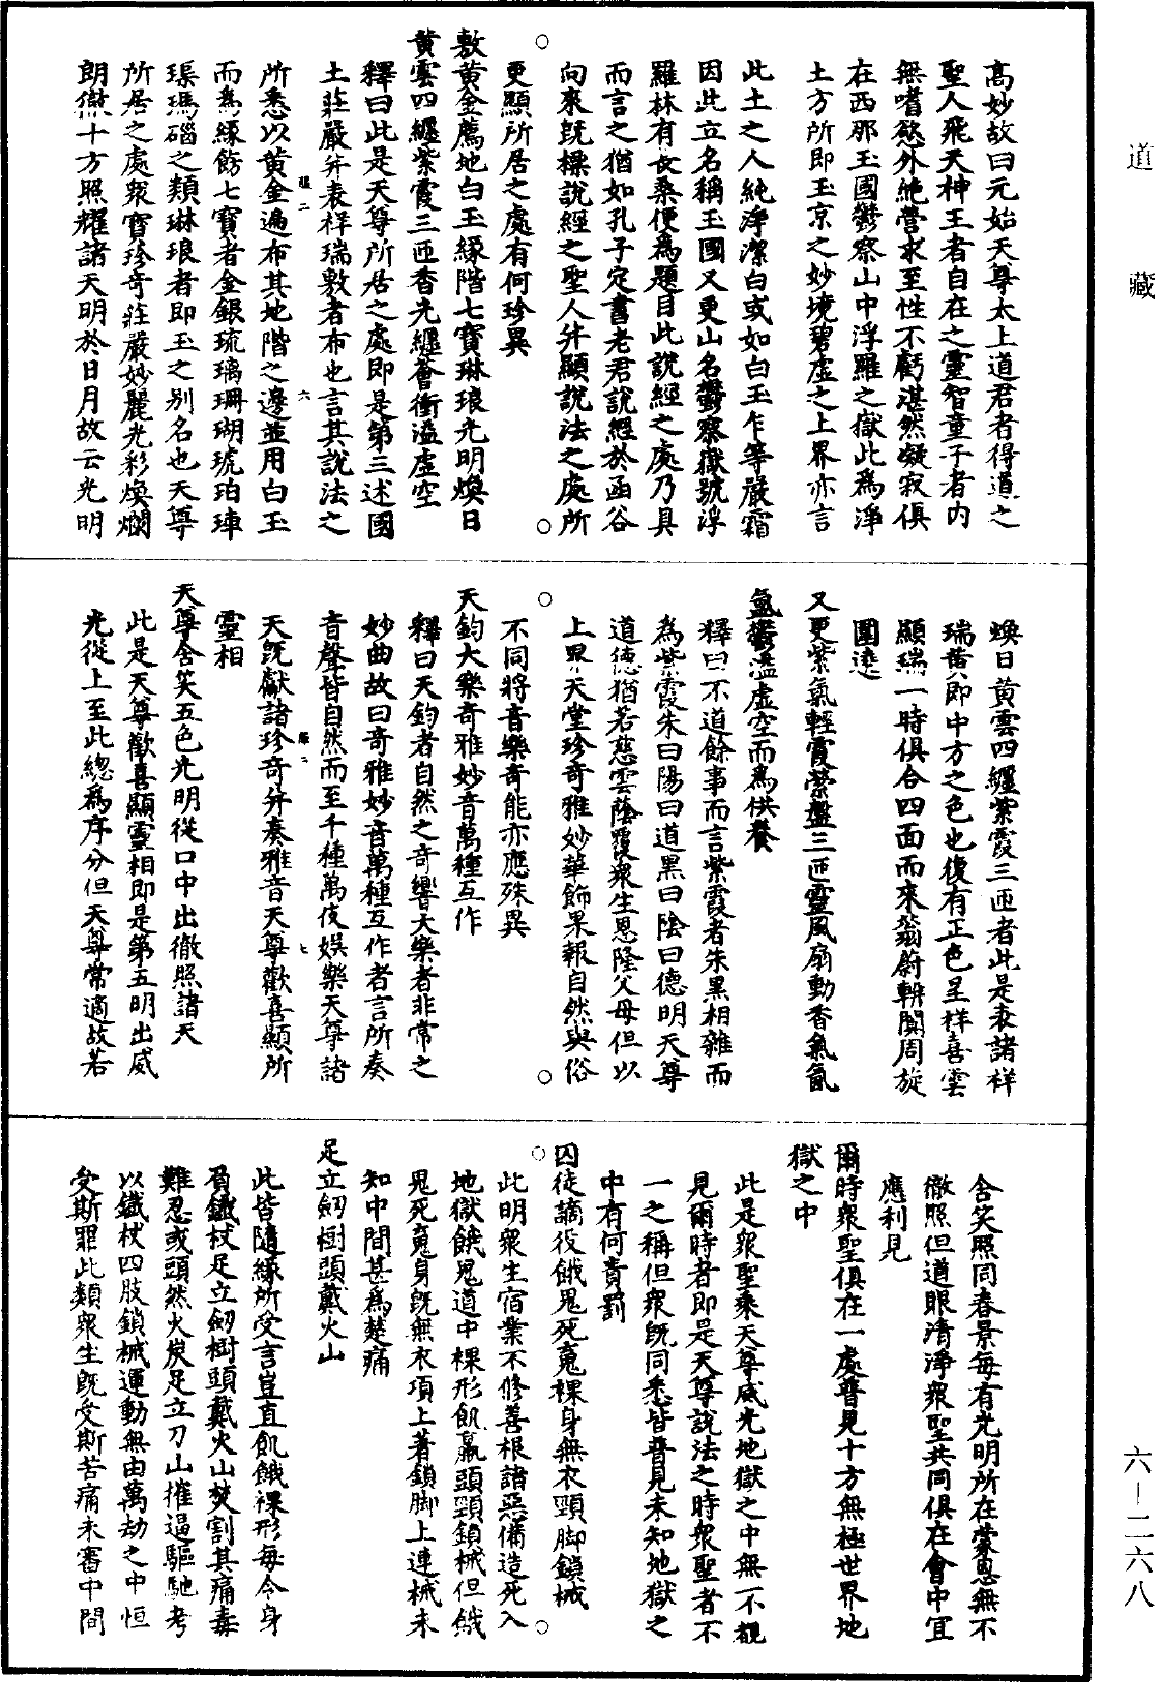 道藏
六—二六八
高妙故曰元始天尊太上道君者得道之
聖人飛天神王者自在之靈智童子者内
無嗜慾外絶營求至性不虧湛然凝寂俱
在西那玉國鬱察山中浮羅之嶽此為淨
土方所即玉京之妙境碧虛之上界亦言
此土之人純淨潔白或如白玉乍等嚴霜
因此立名稱玉國又更山名鬱察嶽號浮
羅林有長桑便為題目此說經之處乃具
而言之猶如孔子定書老君說經於函谷
向來旣標說經之聖人并顯說法之處所
更顯所居之處有何珍異
敷黄金薦地白玉緣階七寶琳琅光明煥日
黄雲四纏紫霞三匝香光纏薈衝溢虛空
釋曰此是天尊所居之處即是第三述國
土莊嚴并表祥瑞敷者布也言其說法之
所悉以黄金遍布其地階之邊並用白玉
而為緣飾七寶者金銀琉璃珊瑚琥珀硨
磲瑪碯之類琳琅者即玉之別名也天尊
所居之處衆寶珍奇莊嚴妙麗光彩煥爛
朗徹十方照耀諸天明於日月故云光明
煥日黄雲四纏紫霞三匝者此是表諸祥
瑞黄即中方之色也復有正色呈祥喜雲
顯瑞一時俱合四面而來蓊蔚輧闐周旋
圍遶
又更紫氣輕霞縈盤三匝靈風扇動香氣氤
氳鬱溢虛空而為供養
釋曰不道餘事而言紫霞者朱黑相雜而
為紫霞朱曰陽曰道黑曰陰曰德明天尊
道德猶若慈雲蔭覆衆生恩隆父母但以
上界天堂珍奇雅妙華飾果報自然與俗
不同將音樂奇能亦應殊異
天鈞大樂奇雅妙音萬種互作
釋曰天鈞者自然之奇響大樂者非常之
妙曲故曰奇雅妙音萬種互作者言所奏
音聲皆自然而至千種萬伎娛樂天尊諸
天旣獻諸珍奇并奏雅音天尊歡喜顯所
靈相
天尊含笑五色光明從口中出徹照諸天
此是天尊歡喜顯靈相即是第五明出威
光從上至此總為序分但天尊常適故若
含笑照同春景每有光明所在蒙恩無不
徹照但道眼清淨衆聖共同俱在會中宜
應利見
爾時衆聖俱在一處普見十方無極世界地
獄之中
此是衆聖乘天尊威光地獄之中無一不覩
見爾時者即是天尊說法之時衆聖者不
一之稱但衆旣同悉皆普見未知地獄之
中有何責罰
囚徒謫役餓鬼死䰟裸身無衣頸脚鎖械
此明衆生宿業不修善根諸惡備造死入
地獄餓鬼道中裸形飢羸頭頸鎖械但餓
鬼死䰟身旣無衣項上著鎖脚上連械未
知中間甚為楚痛
足立劒樹頭戴火山
此皆隨緣所受言豈直飢餓裸形每令身
負鐵杖足立劒樹頭戴火山焚割其痛毒
難忍或頭然火炭足立刀山摧逼驅馳考
以鐵杖四肢鎖械運動無由萬劫之中恒
受斯罪此類衆生旣受斯苦痛未審中間